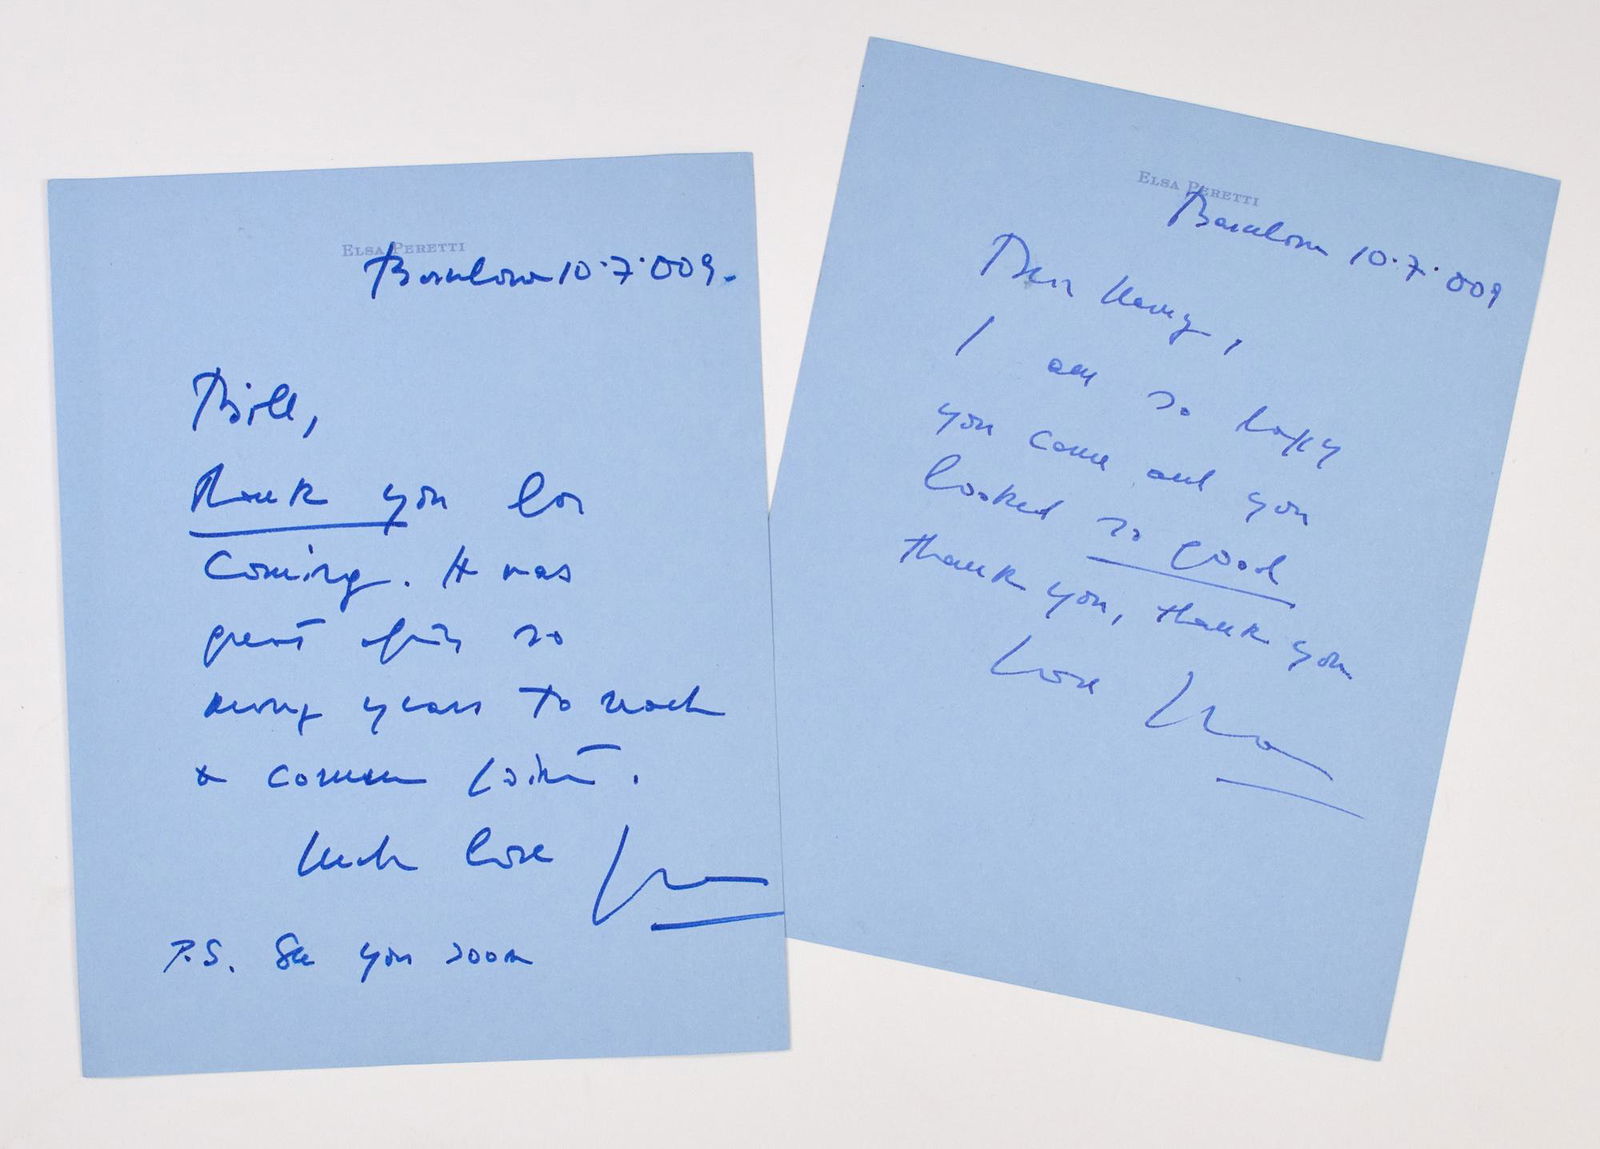 ELSA PERETTI
Barcelona 10.7.009.
Bill,
Thank you for
Coming. It was
great after so
many years to reach
a common point.
Much love
P.S. See you soon
ELSA PERETTI
Barcelona 10.7.009
Dear
I am so happy
you came and you
looked so good
thank you, thank you
Love